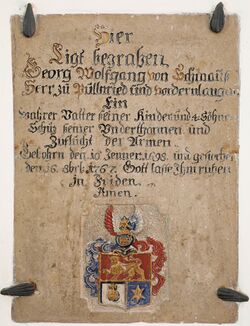 Hier
Ligt begraben
Georg Wolfgang von Schmaus
Herr zu Pullnried und vordernlangau
Ein
wahrer Vatter seiner Kinder und 4 Söhne
Schuz seiner Underthonnen und
Zuflucht der Armen
Gebohrn den 10 Jenner 1698 und gestorben
den 26 8brb 1767. Gott lasse Ihm ruhen
In Friden.
Amen.